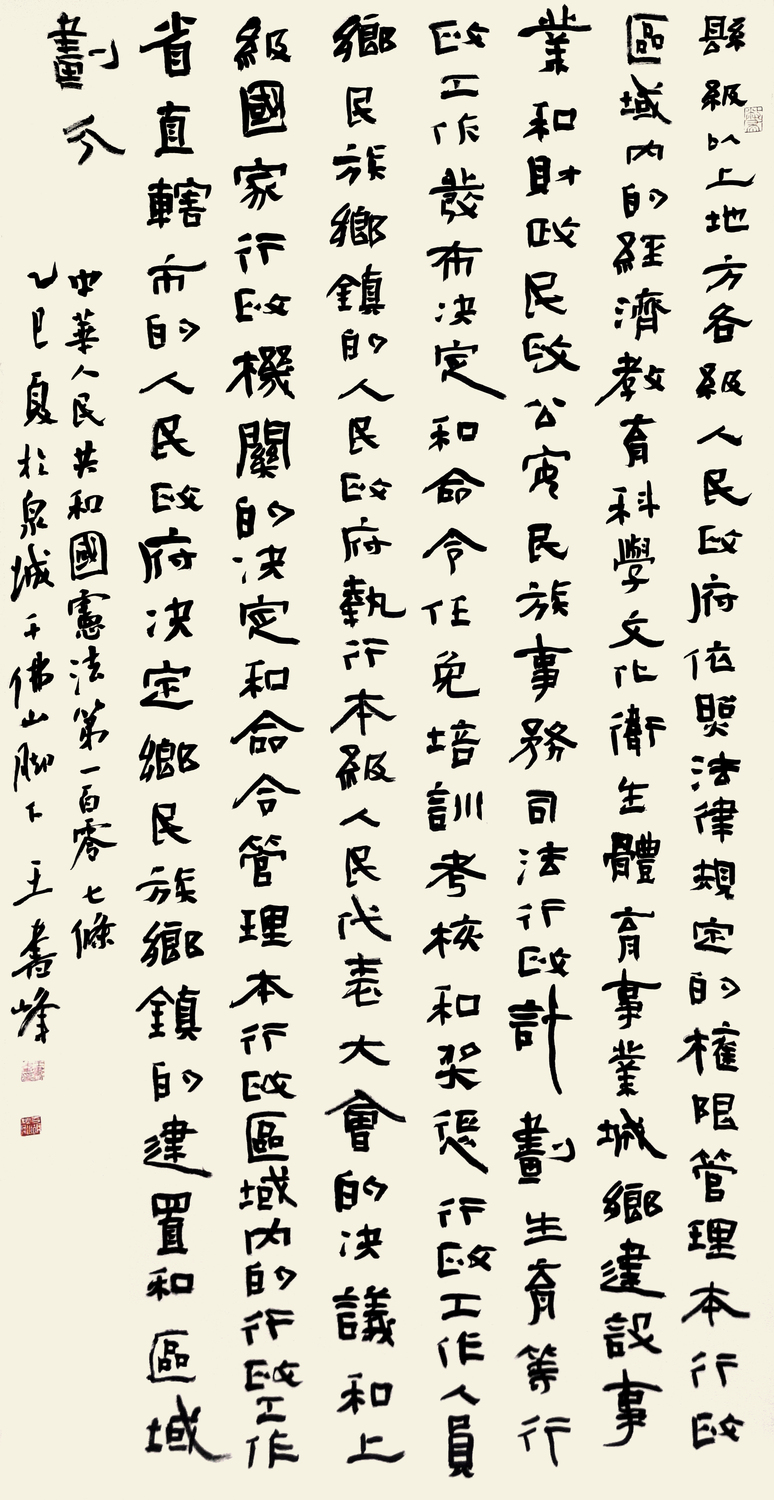 縣級以上地方各級人民政府依照法律規定的權限管理本行政
區域内的經濟教育科學文化衛生體育事業城鄉建設事
業和財政民政公安民族事務司法行政計劃生育等行
政工作發布決定和命令任免培訓考核和奖懲行政工作人員
鄉民族鄉鎮的人民政府執行本級人民代表大會的决議和上
級國家行政機關的决定和命令管理本行政區域内的行政工作
省直轄市的人民政府决定鄉民族鄉鎮的建置和區域
劃分
中華人民共和國憲法第一百零七條
乙巳夏於泉城千佛山脚下王書峰